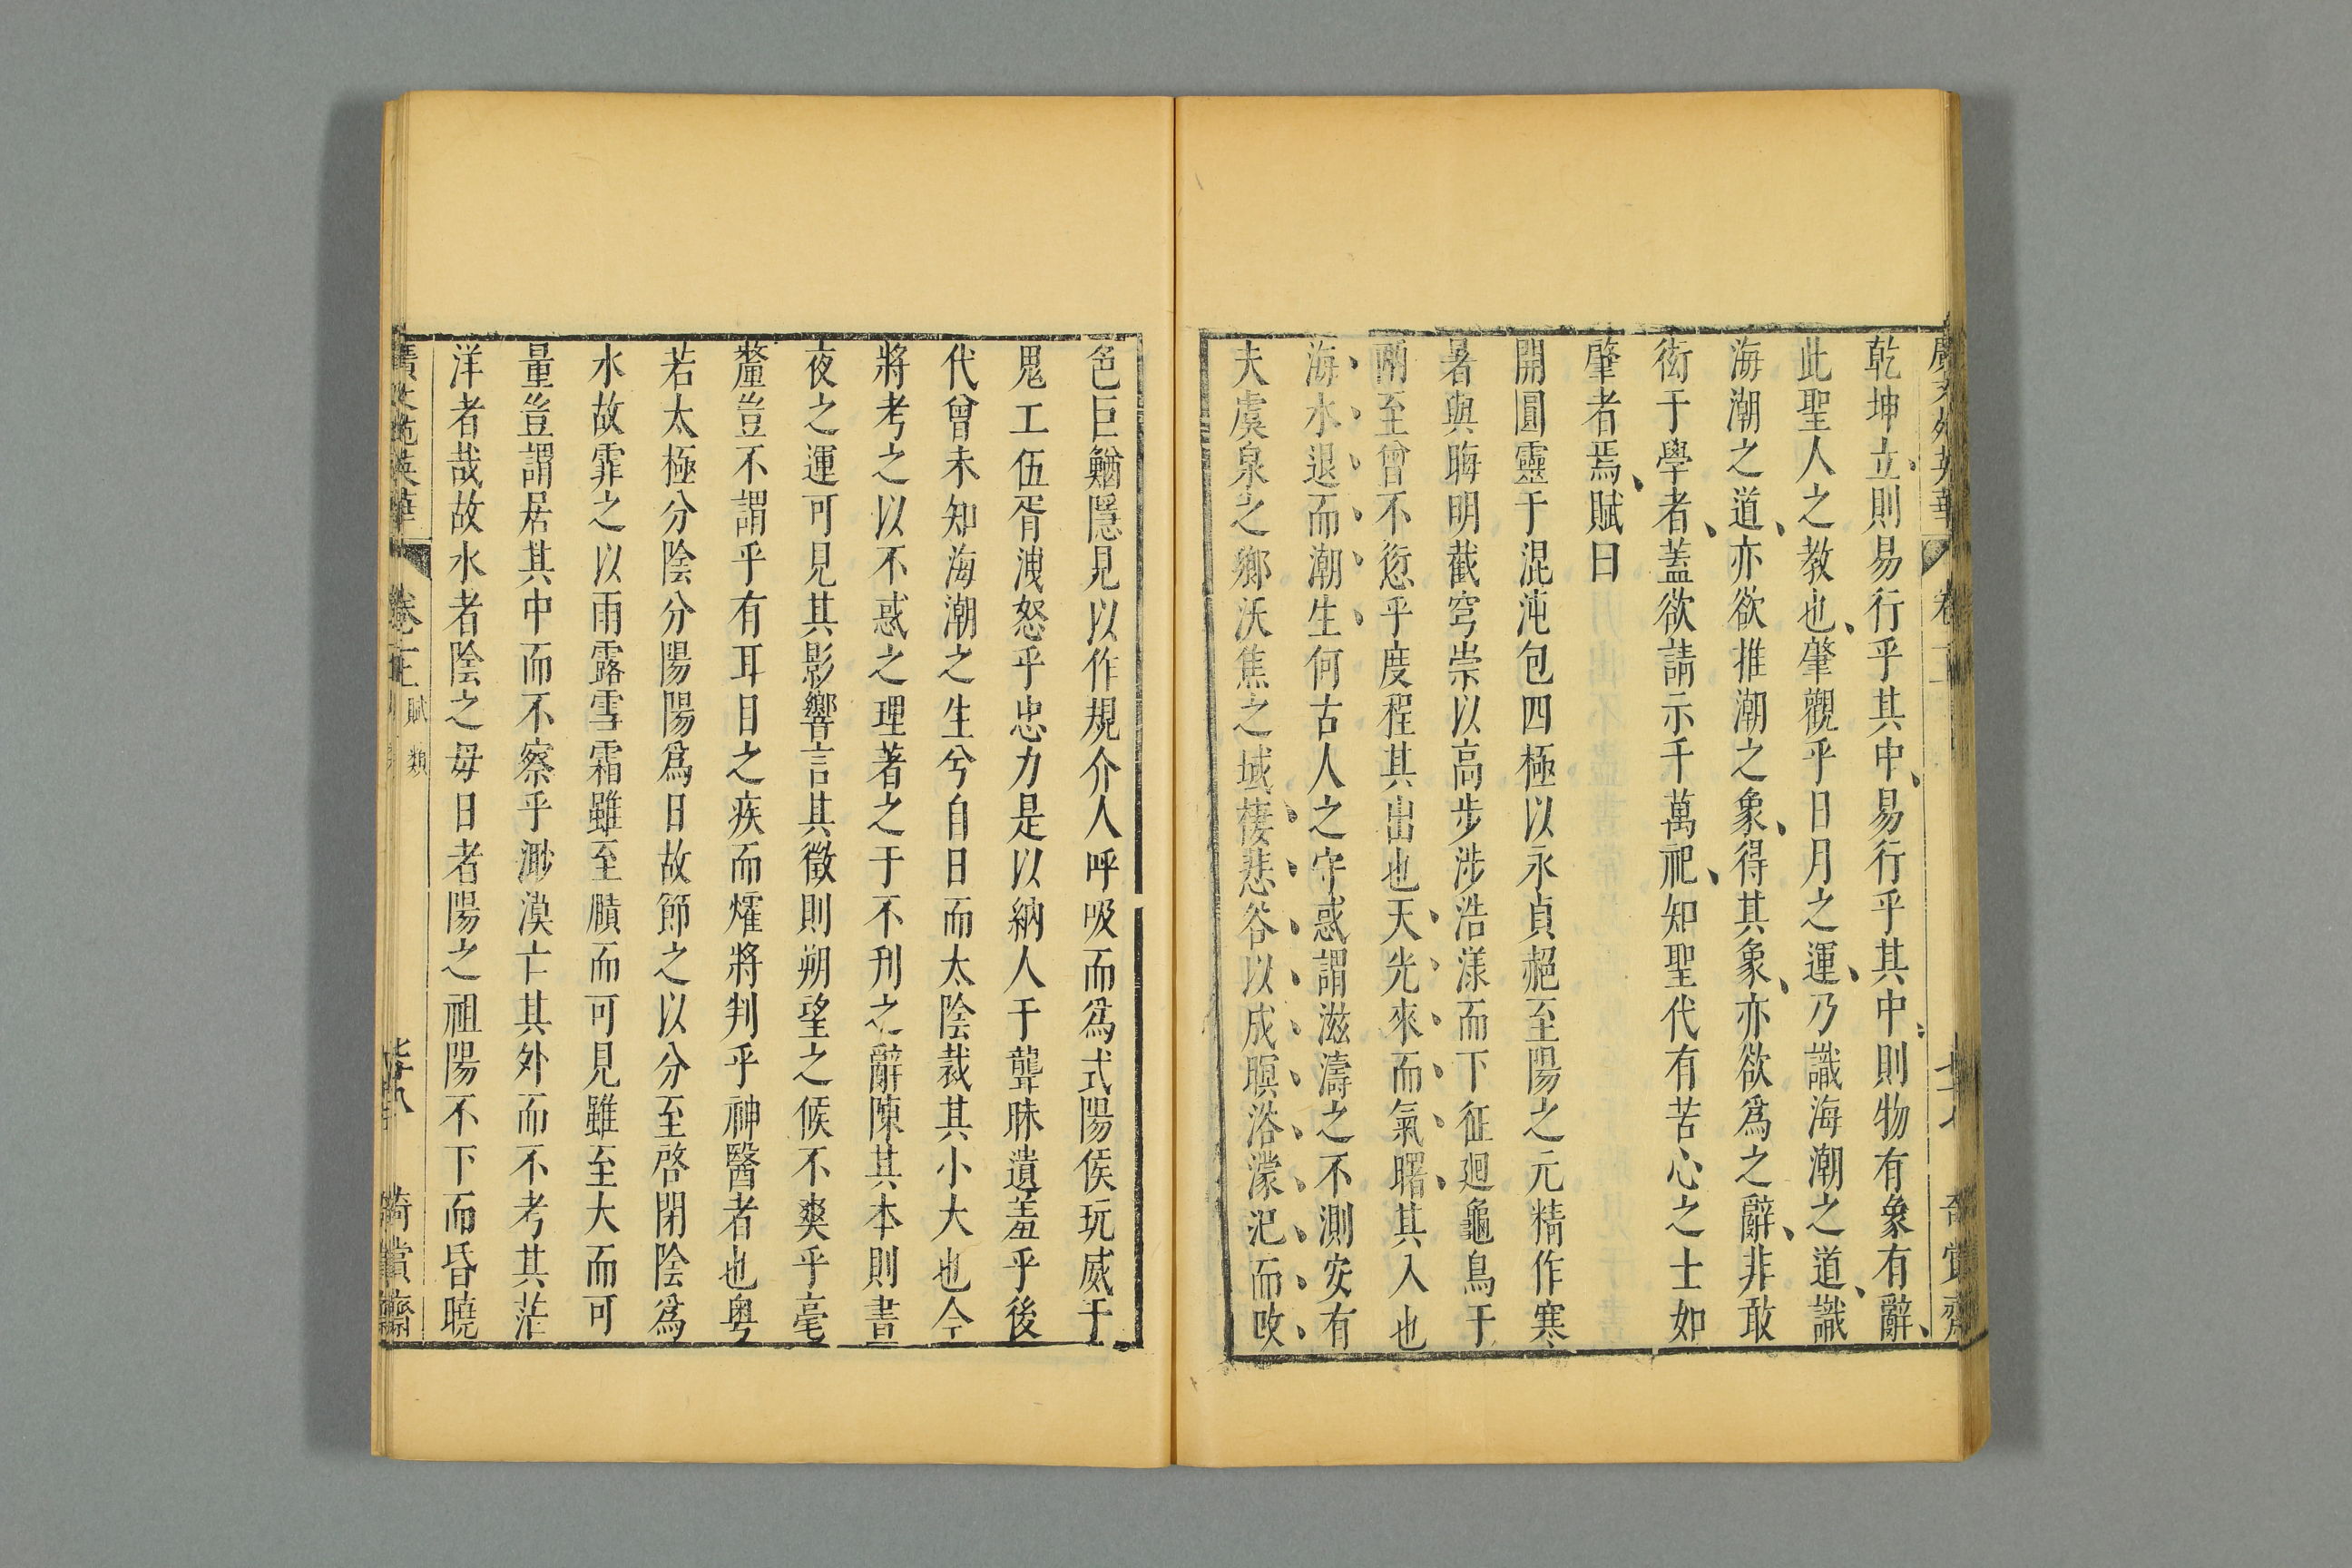 乾坤立則易行乎其中易行乎其中則物有象有辭
此聖人之教也肇觀乎日月之運乃識海潮之道識
海潮之道亦欲推潮之象得其象亦欲為之辭非敢
衒于學者蓋欲請示千萬祀知聖代有苦心之士如
肇者焉賦曰
開圓靈于混沌包四極以永貞赩至陽之元精作寒
暑與晦明截穹崇以高步涉浩漾而下征廻龜鳥于
兩至曾不愆乎度程其出也天光來而氣曙其入也
海水退而潮生何古人之守惑謂滋濤之不測安有
夫虞泉之鄉沃焦之域棲悲谷以成暝浴濛汜而攺
色巨鰌隱見以作規介人呼吸而爲式陽侯玩威于
鬼工伍胥洩怒乎忠力是以納人于聾昧遺羞乎後
代曾未知海潮之生兮自日而太陰裁其小大也今
將考之以不惑之理著之于不刋之辭陳其本則晝
夜之運可見其影響言其徵則朔望之候不爽乎毫
釐豈不謂乎有耳目之疾而燿將判乎神醫者也粤
若太極分陰分陽陽爲日故節之以分至啓閉陰爲
水故霏之以雨露雪霜雖至賾而可見雖至大而可
量豈謂居其中而不察乎渺漠亡其外而不考其茫
洋者哉故水者陰之母日者陽之祖陽不下而昏曉
廣文苑英華 卷三 賦類